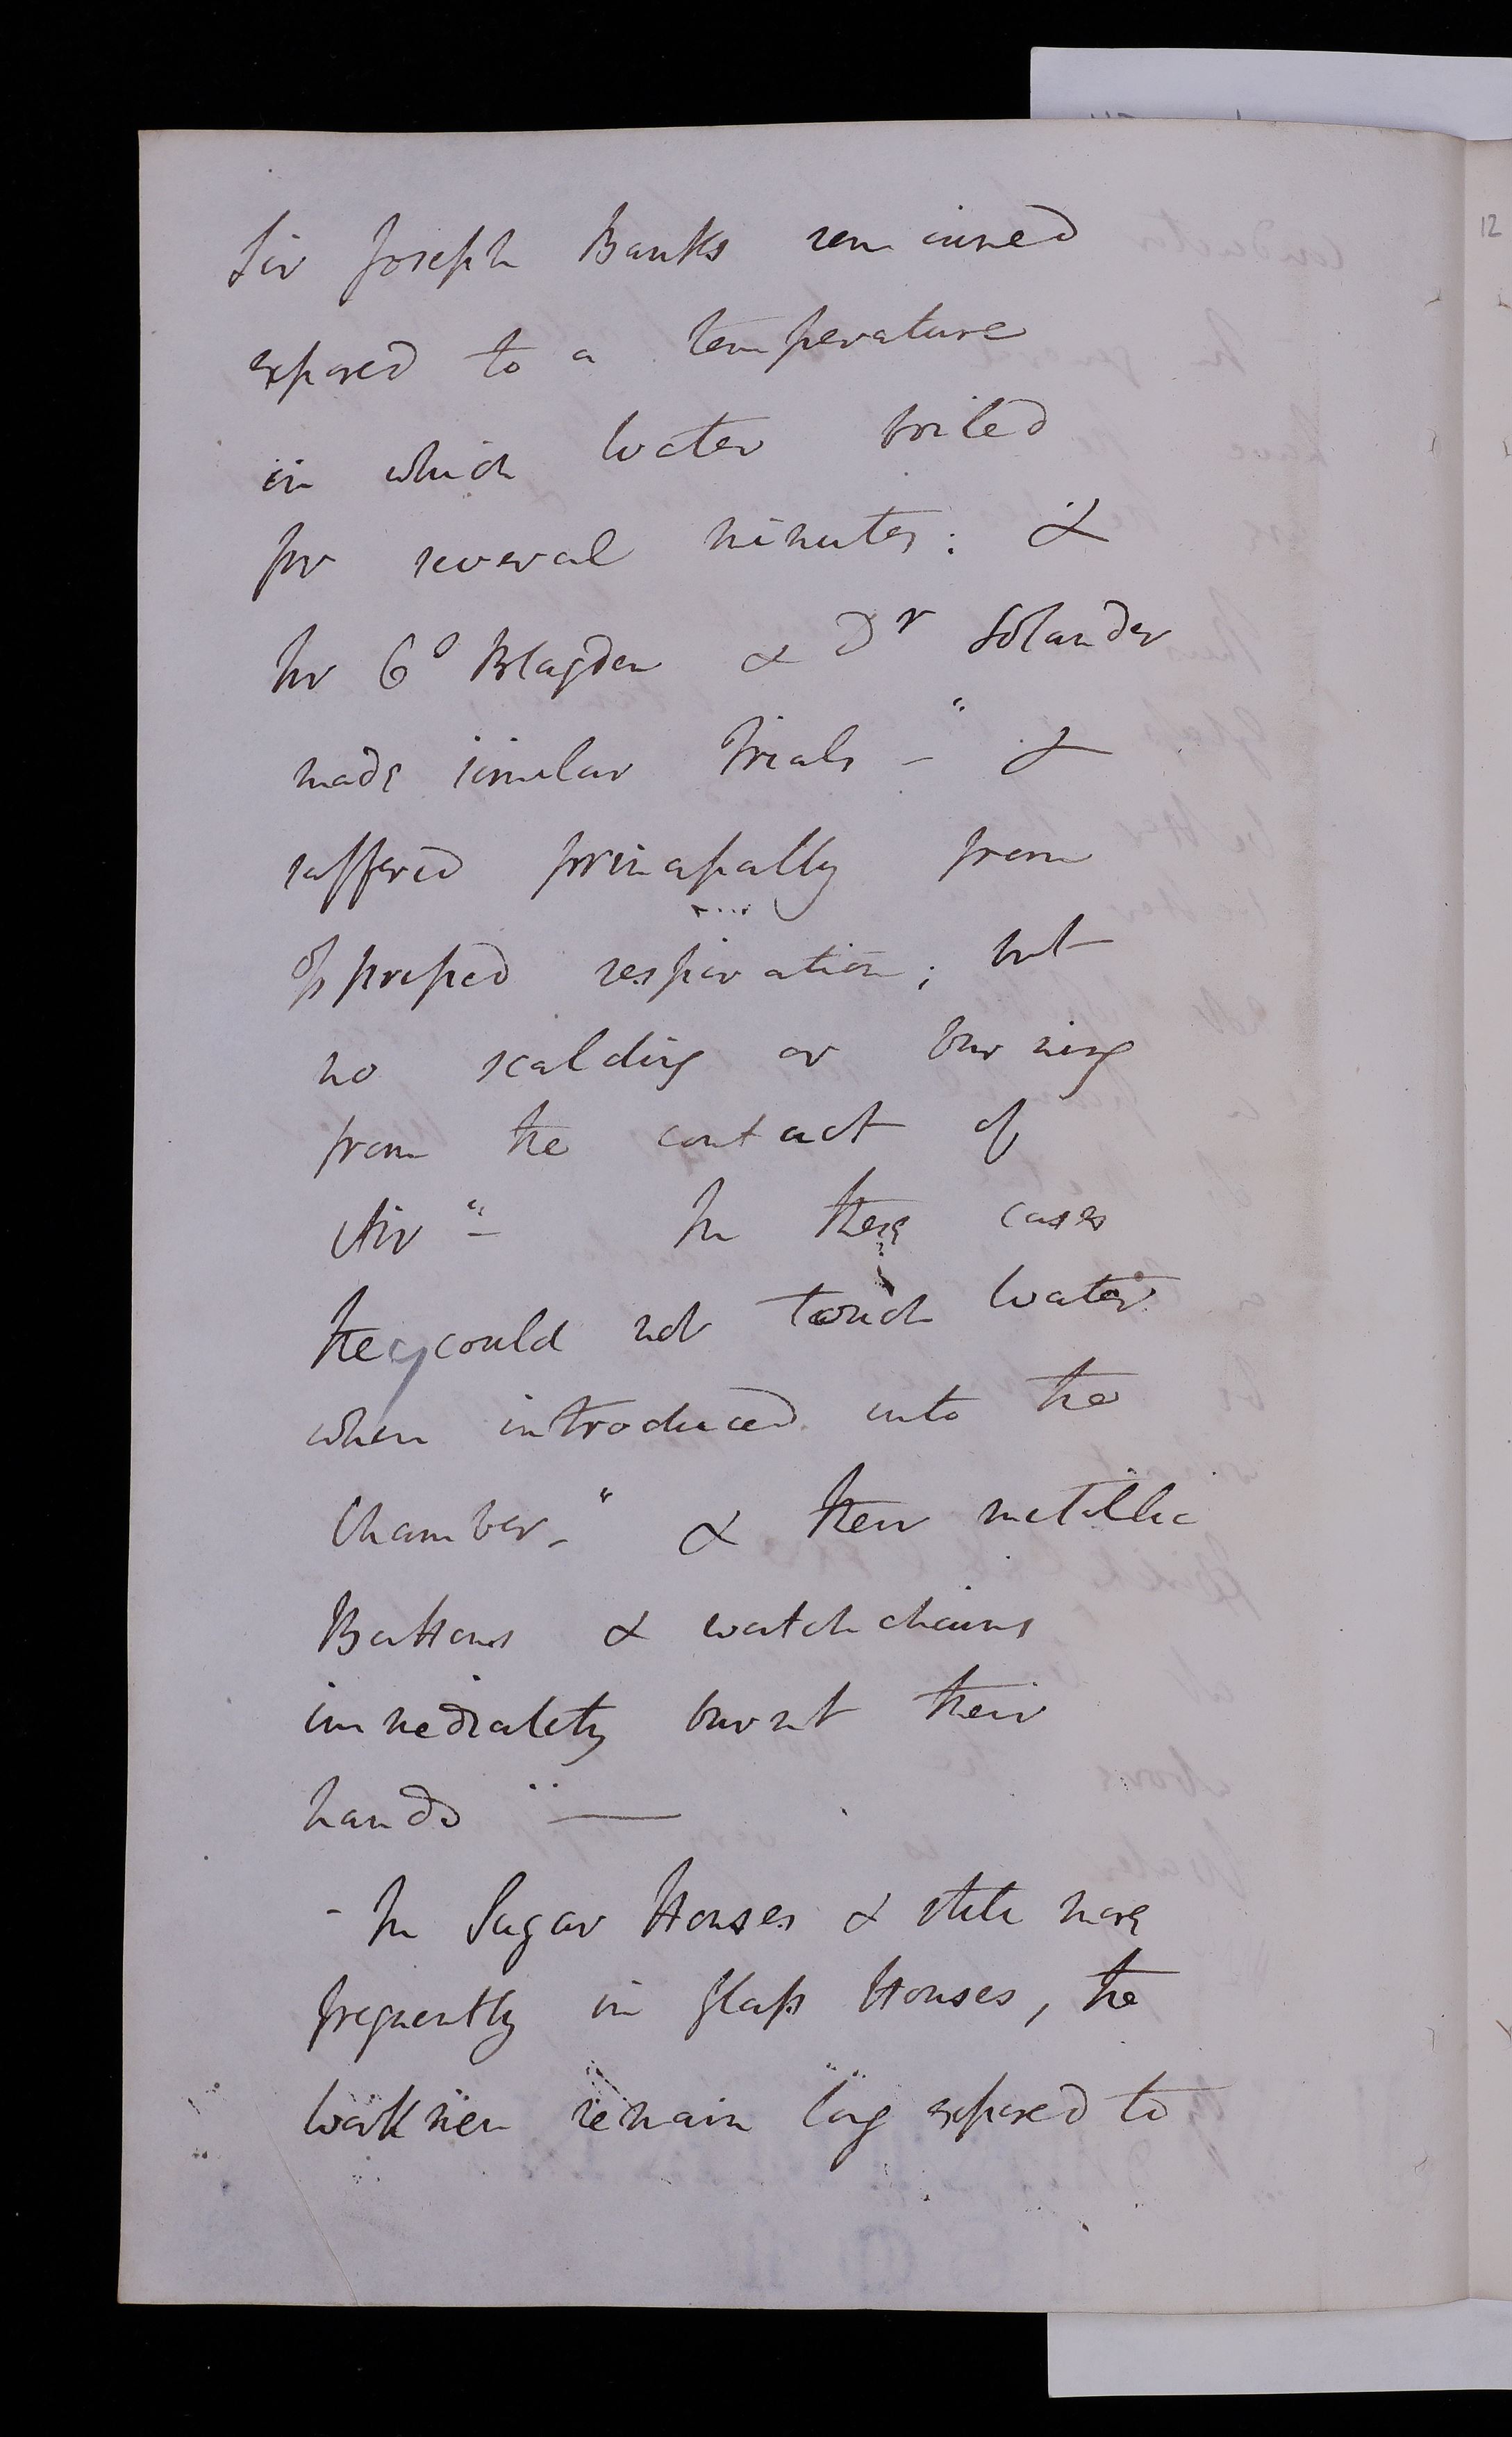 Sir Joseph Banks remained
exposed to a temperature
in which Water boiled
for several minutes: &
Sir Cs Blagden & Dr Solander
made similar trials - " &
suffered principally from
oppressed respiration; but
no scalding or burning
from the contact of
Air " - In these cases
they could not touch Water
when introduced into the
Chamber - " & their metallic
Buttons & watch chains
immediately burnt their
hands " —
- In Sugar Houses & still more
frequently in Glass Houses, the
workmen remain long exposed to
12